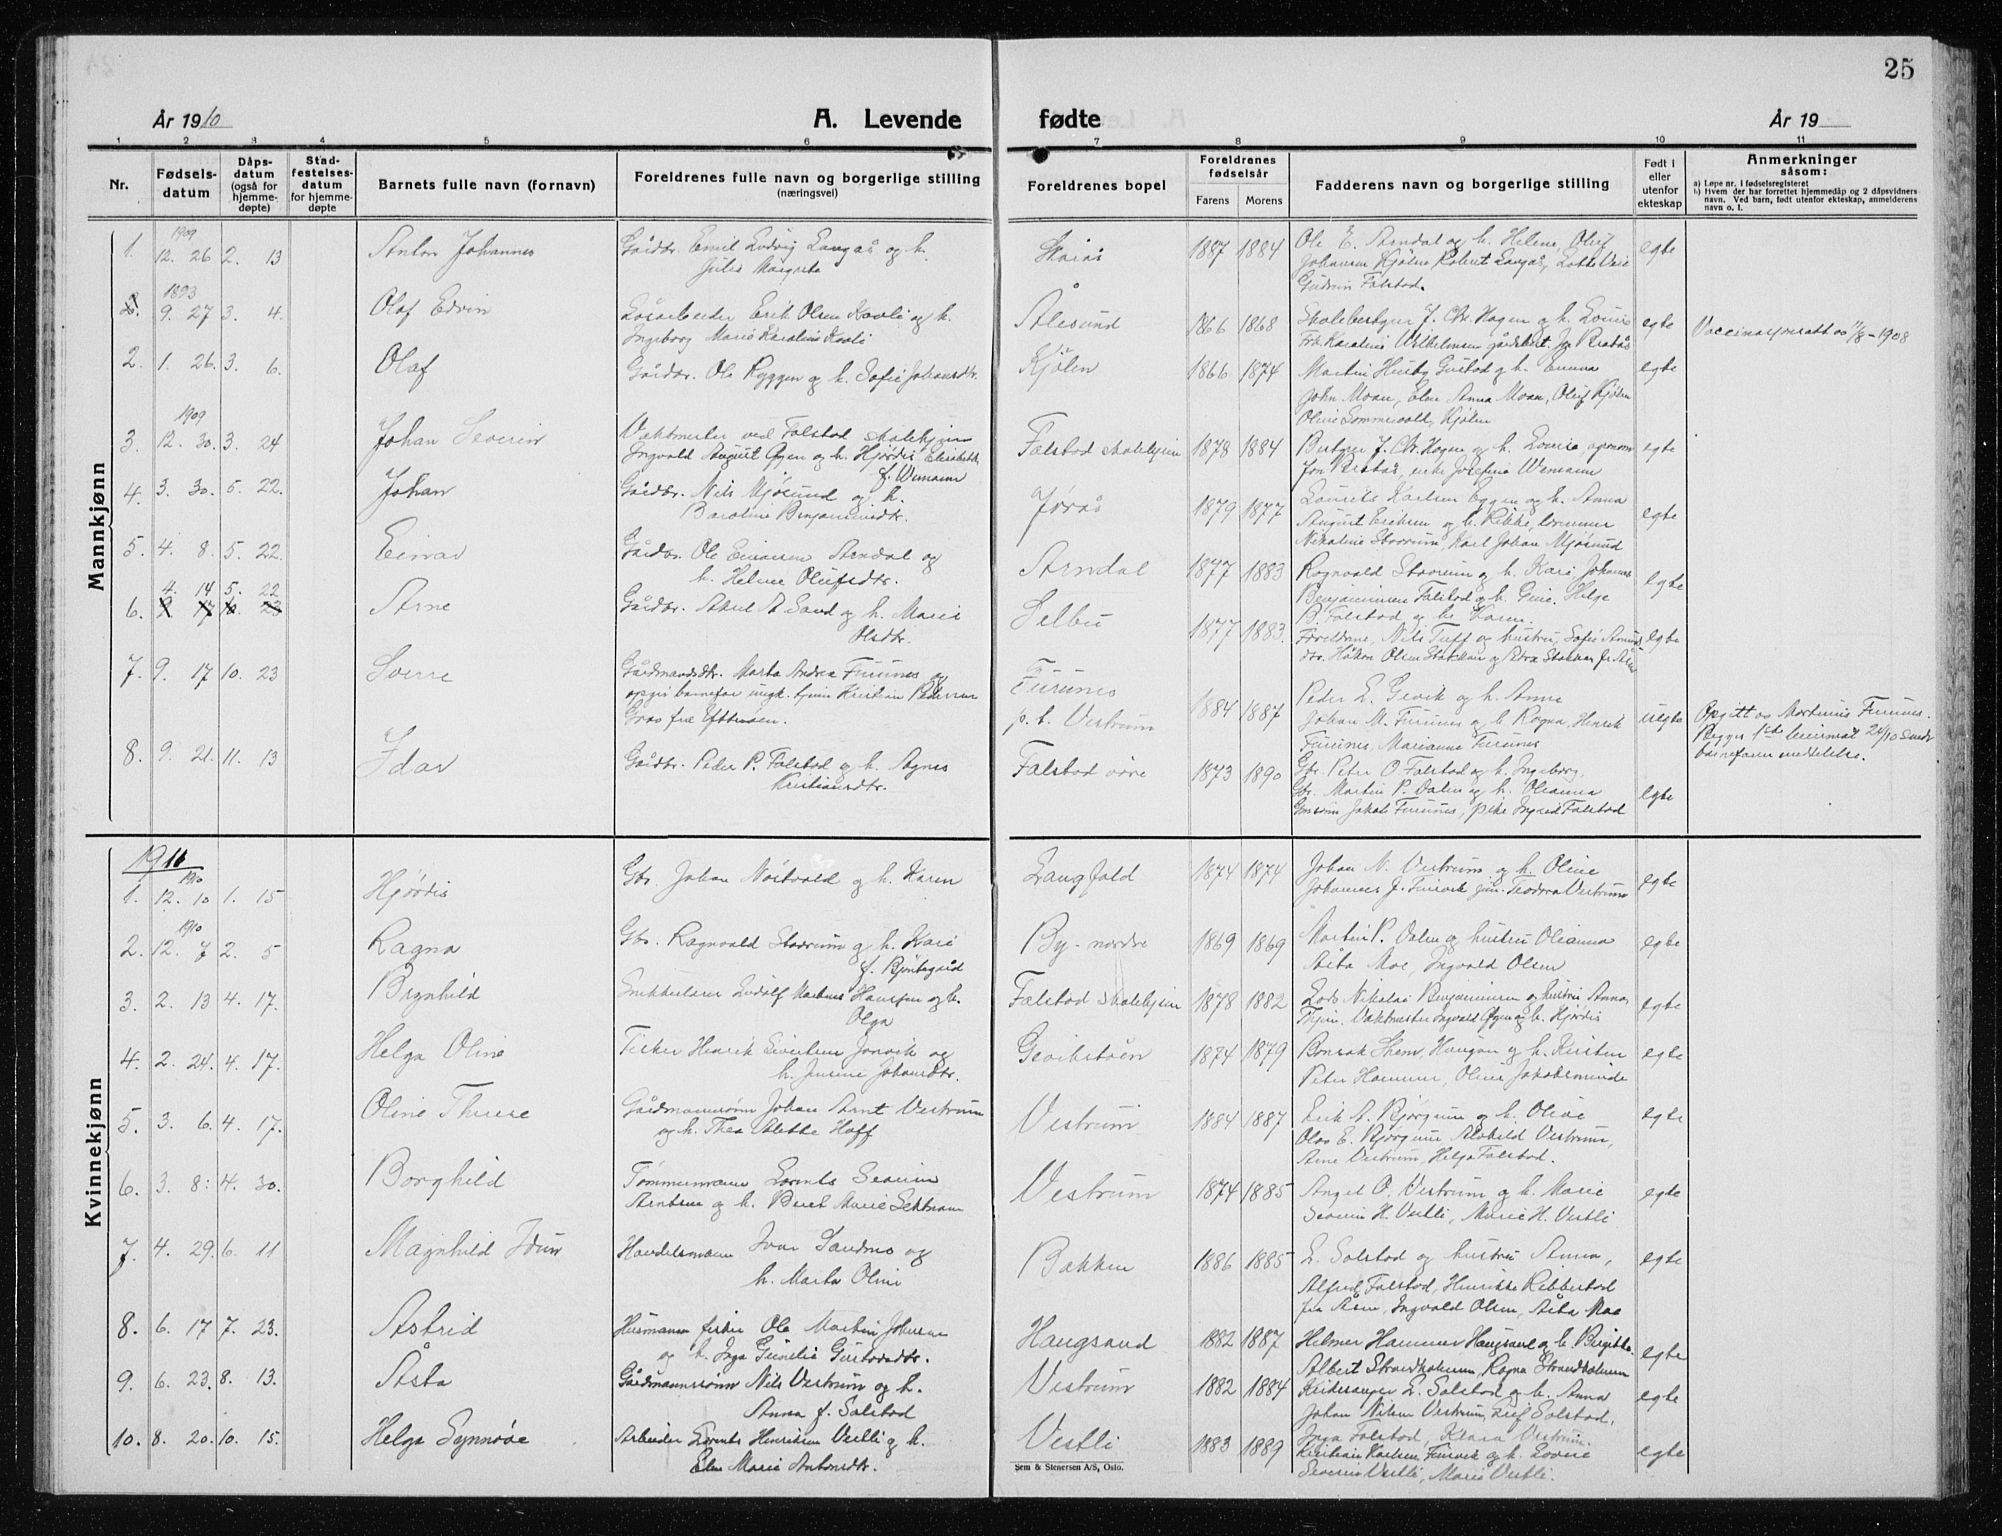 25
År 1910
A. Levende
fødte
År 19
1 2 3 4 5 6 7 8 9 10 11
Nr.
Fødsels-
datum
Dåps-
datum
(også for
hjemme-
døpte)
Stad-
festelses-
datum
for hjemme-
døpte
Barnets fulle navn (fornavn)
Foreldrenes fulle navn og borgerlige stilling
(næringsvei)
Foreldrenes bopel
Foreldrenes
fødselsår
Farens Morens
Fadderens navn og borgerlige stilling
Født i
eller
utenfor
ekteskap
Anmerkninger
såsom:
a) Løpe nr. i fødselsregisteret
b) Hvem der har forrettet hjemmedåp og 2 dåpsvidners
navn. Ved barn, født utenfor ekteskap, anmelderens
navn o. l.
Mannkjønn
1909
1. 12. 26 2. 13 Anton Johannes Gårdbr. Emil Ludvig Langås og h. 1887 1884 Ole E. Arndal og h. Helene, Oluf egte
Julie Margrete
Johansen Kjølen Robert Langås, Lotte
Gudrun Falstad.
1893
9. 27 3. 4. Olaf Edvin Løsarbeider Erik Olsen Kavli og h. Ålesund 1866 1868 Skolebestyrer J. Chr. Hagen og h. Louise egte Vaccinasjonsatt 11/8-1908
Ingeborg Marie Karoline Kavli
Frk. Karoline Vilhelmsen
2. 1. 26. 3. 6. Olaf Gårdbr. Ole Ryggen og h. Sofie Johansdtr. Kjølen 1866 1874 Martin Husby Gustad og h. Emma egte
John Moan, Elen Anna Moan, Oluf Kjølen
Oline Sommervold, Kjølen
1909
3. 12. 30. 3. 24 Johan Severin Vaktmester ved Falstad skolehjem Falstad skolehjem 1878 1884 Bestyrer J. Chr. Hagen og h. Louise egte
Ingvald August Øyen og h. Hjørdis Elisabeth
f. Wemann
4. 3. 30. 5. 22. Johan Gårdbr. Nils Mjøsund og h. 1879 1877 Laurits Karlsen Eggen og h. Anna egte
Baroline Benjaminsdtr.
August Eriksen og h. Rikke,
Nikoline Storrum, Karl Johan Mjøsund
5. 4. 8. 5. 22. Einar Gårdbr. Ole Einarsen Arndal og Arndal 1877 1883 Ragnvald Storrum og h. Kari Johannes egte
h. Helene Olufsdtr.
Benjaminsen Falstad og h. Gine. Helge
B. Falstad og h. Karen.
4. 14 5. 22
6. 9 17 10. 23 Arne Gårdbr. Aksel A Sand og h. Marie Selbu 1877 1883. Foreldrene, Nils Tuff og hustru, Sofie egte
Olsdtr.
dtr. Håkon Olsen Stokkan og Petra Stokkan
7. 9. 17 10. 23 Sverre Gårdmandsdtr. Marta Andrea Furunes og Furunes 1884 1887 Peder L. Gevik og h. Anne uegte
opgir barnefar ungk. Kristian Pedersen p. t. Vestrum Johan M. Furunes og h. Ragna, Henrik Opgitt av Mortinus Furunes.
Furunes, Marianne Furunes
8. 9. 21. 11. 13 Idar Gårdbr. Peder P. Falstad og h. Agnes Falstad øvre 1873 1890 Gbr. Peter O. Falstad og h. Ingeborg. egte
Kristiansdtr.
Gbr. Martin P. Dalen og h. Olianna
Jakob Furunes, pike Ingrid Falstad
Kvinnekjønn
1911
1910
1. 12. 10 1. 15 Hjørdis Gbr. Johan Nøstvold og h. Karen Langfald 1874 1874 Johan N. Vestrum og h. Oline egte
Johannes J. Finvik jun. Teodora Vestrum
1910
2. 12. 7 2. 5 Ragna Gbr. Ragnvald Storrum og h. Kari By-nordre 1869 1869 Martin P. Dalen og hustru Olianna egte
f. Bjørtegård
Åsta Moe, Ingvald Olsen
3. 2. 13 4. 17. Brynhild Snikkerlærer Ludolf Martens Hansen og h. Falstad skolehjem 1878 1882 Lods Nikolai Benjaminsen og hustru Anna, egte
Olga
Vaktmester Ingvald Øyen og h. Hjørdis
4. 2. 24. 4. 17. Helga Oline Fisker Henrik Sivertsen Jørvik og 1874 1879 Haugan og h. Kirsten egte
h. Jensine Johansdtr.
Peter Hammer, Oline Jakobsen
5. 3. 6. 4. 17. Oline Therese Gårdmannssønn Johan Arnt Vestrum Vestrum 1884 1887 Erik A. Bjørgum og h. Olise egte
og h. Thea Alette Hoff
Olav E. Bjørgum Alvhild Vestrum,
Arne Vestrum, Helga Falstad.
6. 3. 8. 4. 30. Borghild Tømmermann Lorents Severin Vestrum 1874 1885 Angel O. Vestrum og h. Marie egte
Arntsen og h. Beret Marie
Severin H. Vestli, Marie H. Vestli
7. 4. 29. 6. 11 Magnhild Idun Handelsmann Ivar Sandmo og Bakken 1886 1885 L. Salstad og hustru Anna, egte
h. Marta Oline
Alfred Falstad, Henrikke Ribberstad
fra Åsen, Ingvald Olsen, Åsta Moe
8. 6. 17 7. 23. Astrid Husmann fisker Ole Martin Johnsen Haugsand 1882 1887 Helmer Hammer Haugsand og h. Birgitte egte
og h. Inga Gunelie Gustavsdtr.
Albert Strandholmen Ragna Strandholmen
9. 6. 23. 8. 13. Åsta Gårdmannssønn Nils Vestrum og h. Vestrum 1882 1884 Kirkesanger L. Salstad og h. Anna egte
Anna f. Salstad
Johan Nilsen Vestrum, Leif Salstad,
Inga Falstad, Klara Vestrum.
10. 8. 20. 10. 15. Helga Synnøve Arbeider Lorents Henriksen Vestli og h. Vestli 1883 1889 Kristian Karlsen Finvik og h. Lovise egte
Elen Marie Antonsdtr.
Severin Vestli, Marie Vestli.
Sem & Stenersen A/S, Oslo.